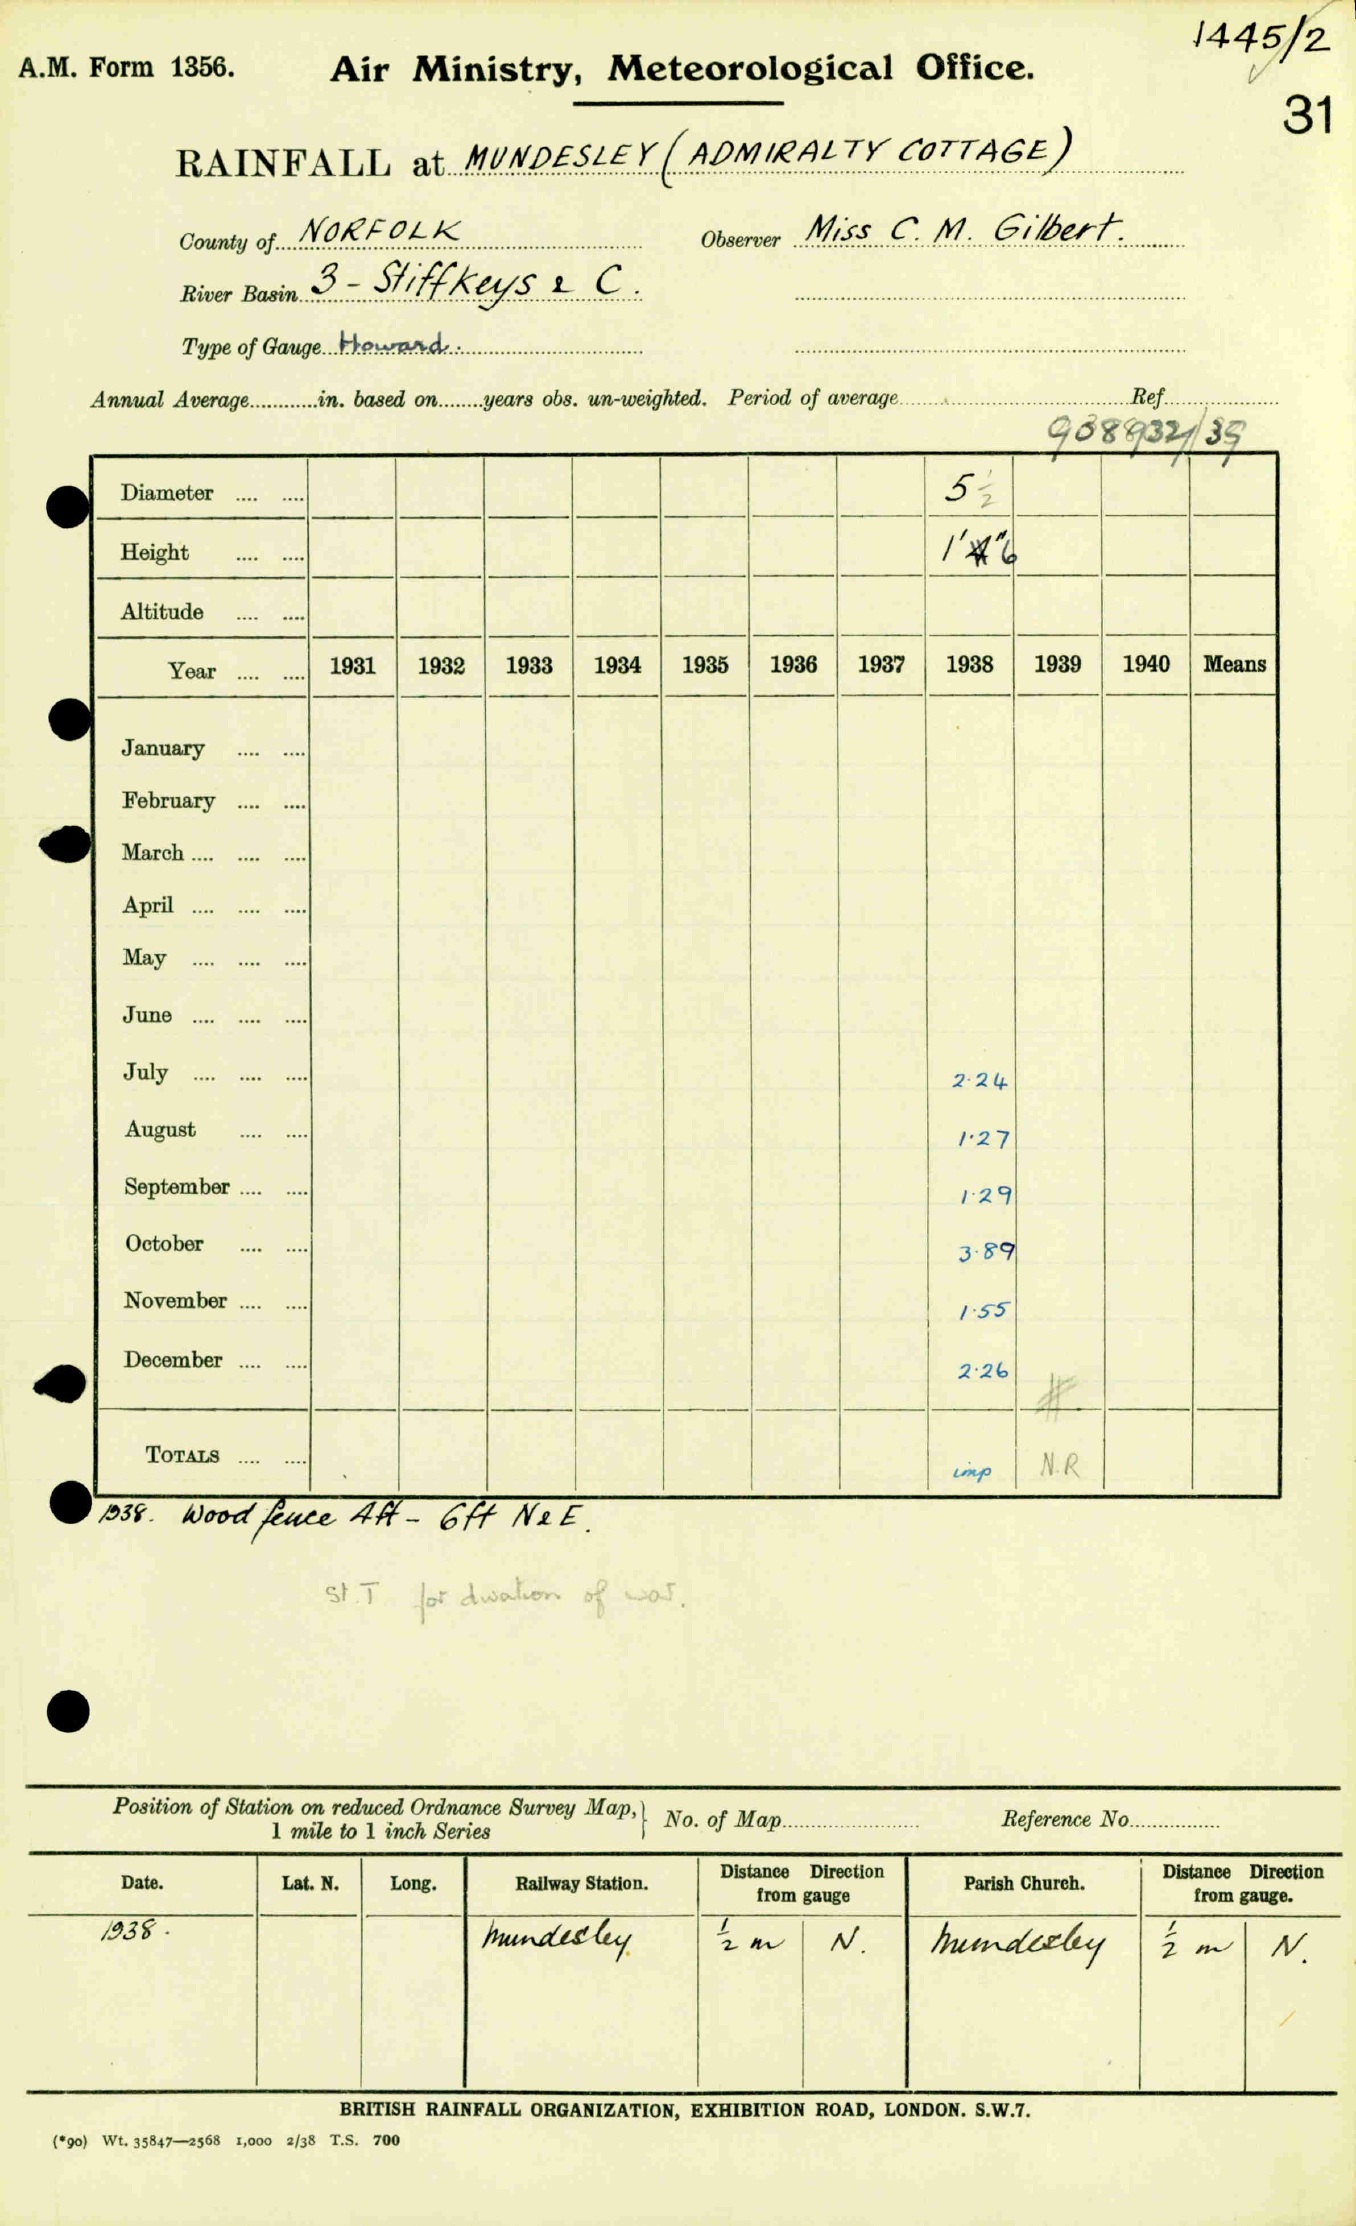 1445/2
A.M. Form 1356. Air Ministry, Meteorological Office.
31
RAINFALL at MUNDESLEY (ADMIRALTY COTTAGE)
County of NORFOLK Observer Miss C. M. Gilbert.
River Basin 3 - Stiffkeys & C.
Type of Gauge Howard.
Annual Average............in. based on........years obs. un-weighted. Period of average.......... Ref..........
Diameter .... .... 5 ½
Height .... ....
Altitude .... ....
Year .... .... 1931 1932 1933 1934 1935 1936 1937 1938 1939 1940 Means
January .... ....
February .... ....
March .... .... ....
April .... .... ....
May .... .... ....
June .... .... ....
July .... .... .... 2.24
August .... .... 1.27
September .... .... 1.29
October .... .... 3.89
November .... .... 1.55
December .... .... 2.26
TOTALS .... .... imp N.R
1938. Wood fence 4ft - 6ft N & E.
St. T for duration of war.
Position of Station on reduced Ordnance Survey Map, } No. of Map.......... Reference No..........
1 mile to 1 inch Series
Date. Lat. N. Long. Railway Station. Distance Direction from gauge Parish Church. Distance Direction from gauge.
1938. Mundesley ½ m N. Mundesley ½ m N.
BRITISH RAINFALL ORGANIZATION, EXHIBITION ROAD, LONDON. S.W.7.
(*90) Wt. 35847—2568 1,000 2/38 T.S. 700